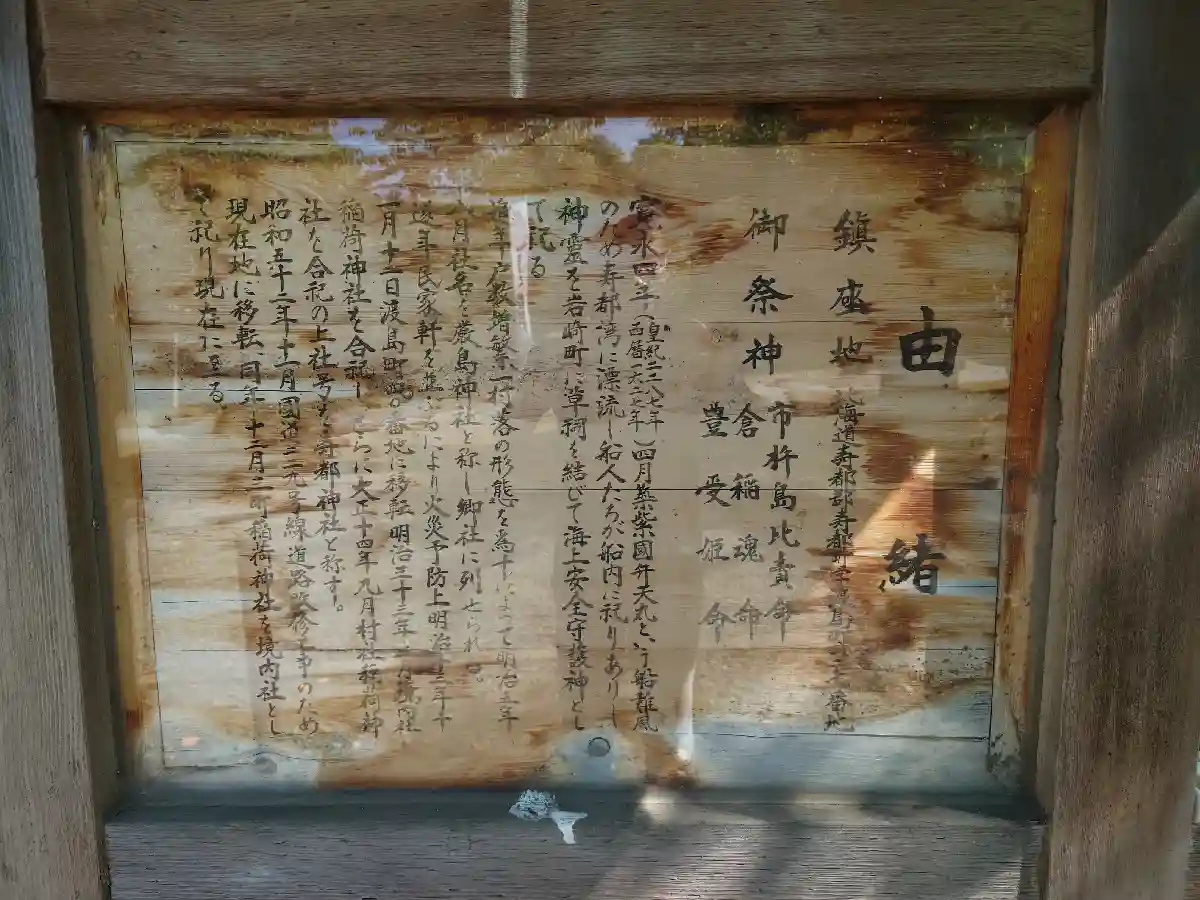 由緒
鎮座地 北海道寿都郡寿都町字渡島町 番地
御祭神 市杵島比売命
倉稲魂命
豊受姫命
寛永四年(皇紀二二八七年 西暦一六二七年)四月築紫國弁天丸という船難風
のため寿都湾に漂流し船人たちが船内に祀りありし
神霊を岩崎町に草祠を結びて海上安全守護神とし
て祀る
年戸数増繁一村落の形態を為すによって明治 年
月社名を厳島神社と称し郷社に列せられ
逐年民家軒を により火災予防上明治 年十
一月十二日渡島町 番地に移転明治三十三年 月
稲荷神社を合祀しさらに大正十四年九月村社稲荷神
社を合祀の上社号を寿都神社と称す。
昭和五十二年十一月國道二二九号線道路改修工事のため
現在地に移転、同年十二月 町稲荷神社を境内社とし
て祀り現在に至る